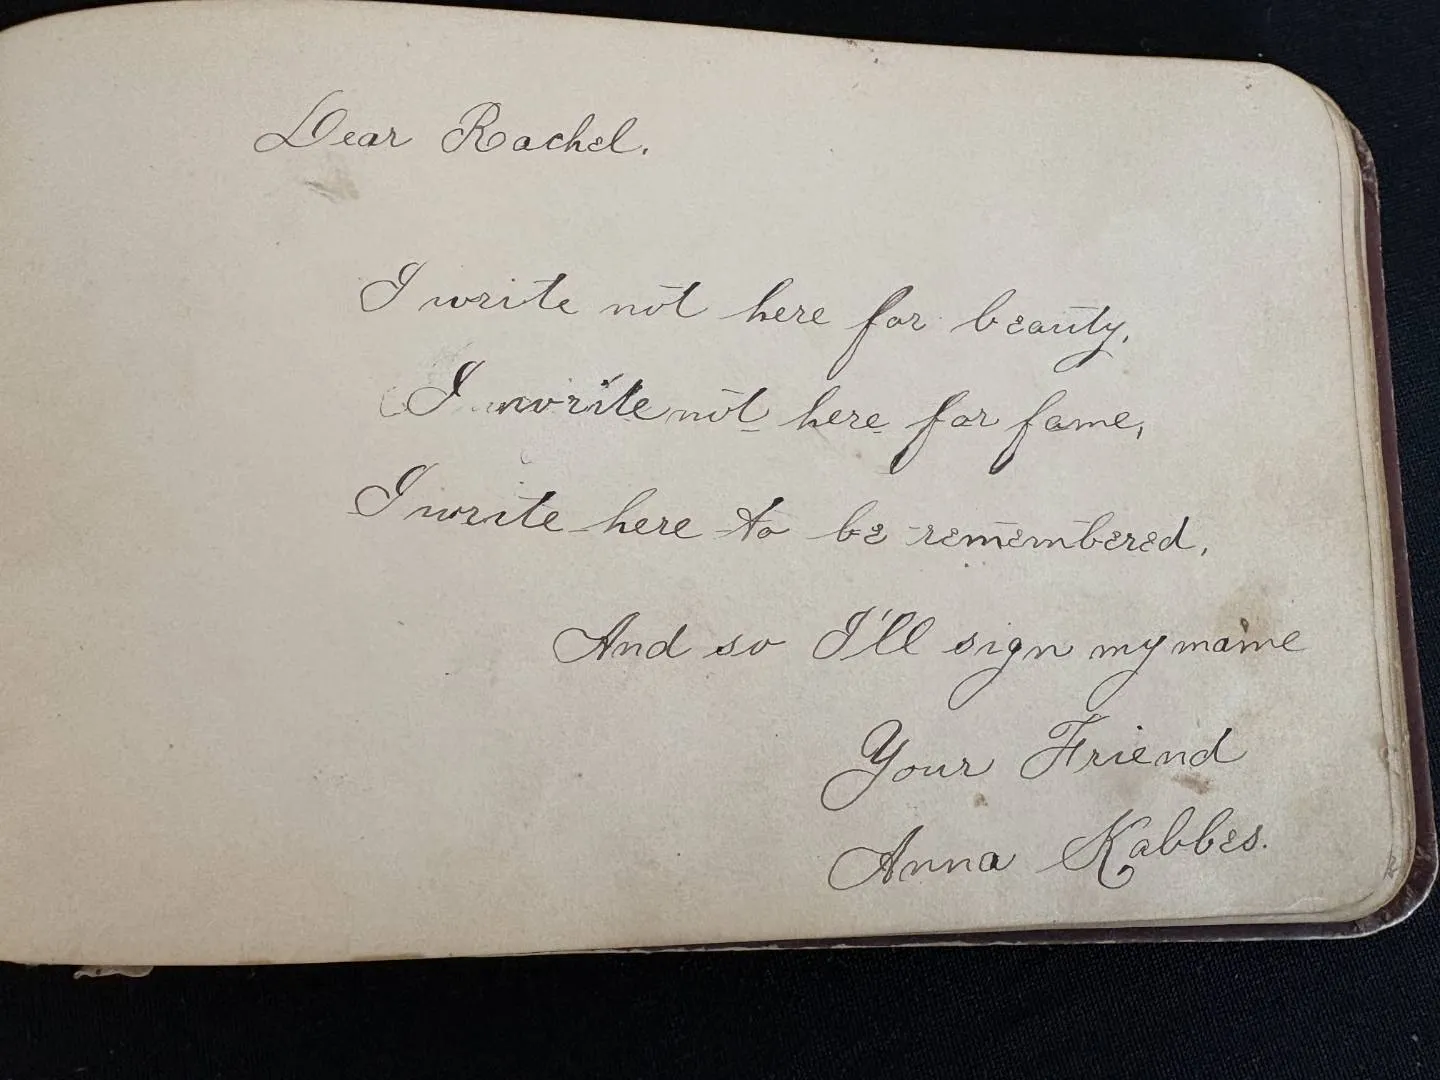 Dear Rachel.
I write not here for beauty,
I write not here for fame,
I write here to be remembered,
And so I'll sign my name
Your Friend
Anna Kabbes.